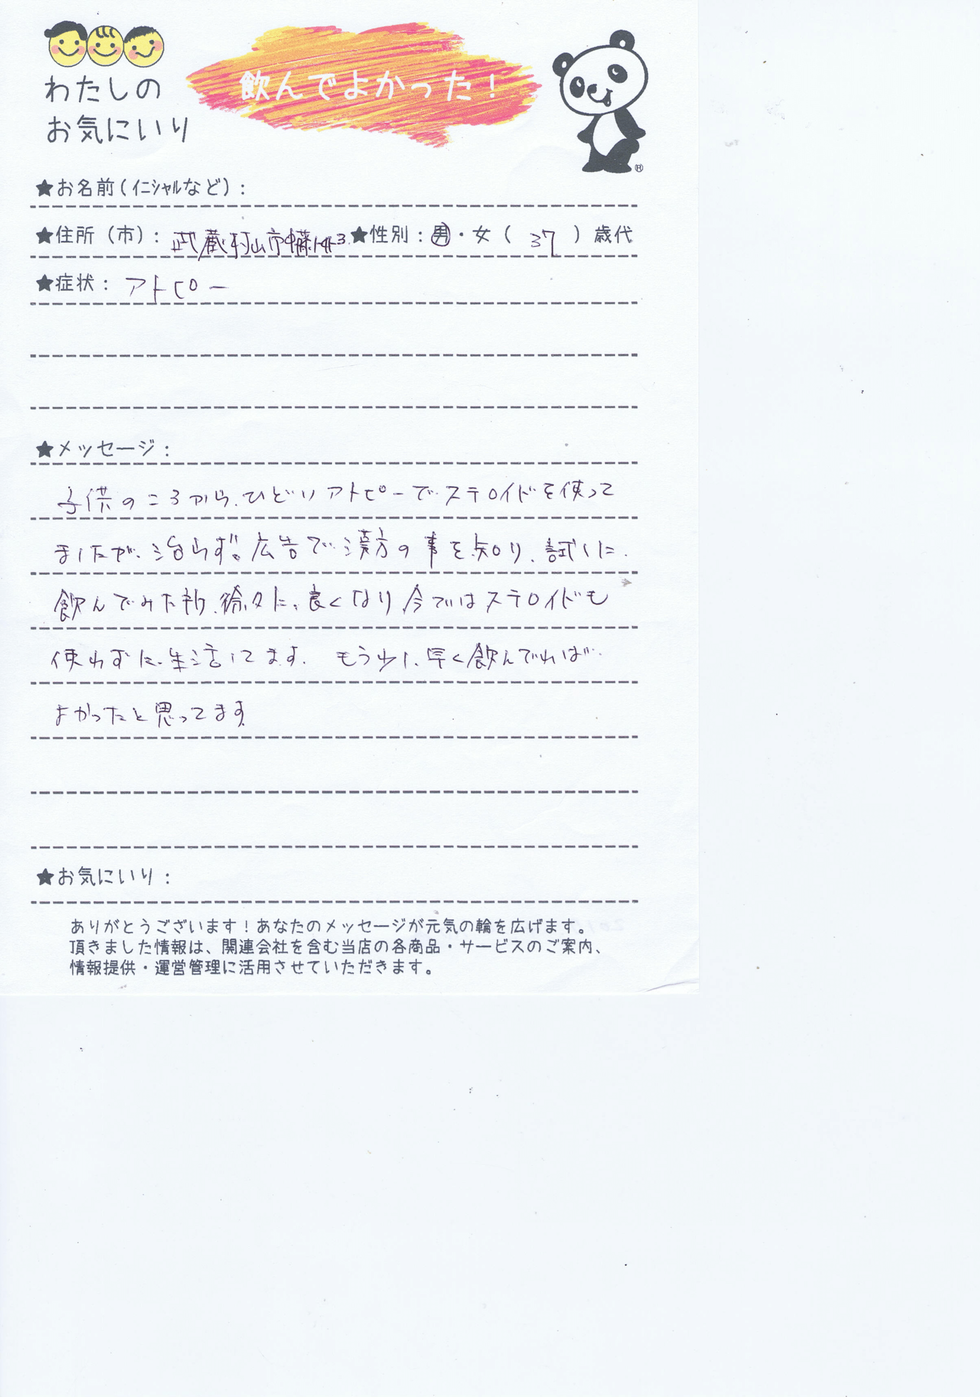 わたしの
お気にいり
飲んでよかった！
★お名前(ｲﾆｼｬﾙなど)：
★住所（市）：武蔵村山市 ★性別：男・女（ 37 ）歳代
★症状：アトピー
★メッセージ：
子供のころから、ひどいアトピーでステロイドを使って
ましたが、治らず。広告で漢方の事を知り、試しに、
飲んでみた所、徐々に、良くなり今ではステロイドも
使わずに、生活してます。もう少し、早く飲んでれば
よかったと思ってます
★お気にいり：
ありがとうございます！あなたのメッセージが元気の輪を広げます。
頂きました情報は、関連会社を含む当店の各商品・サービスのご案内、
情報提供・運営管理に活用させていただきます。